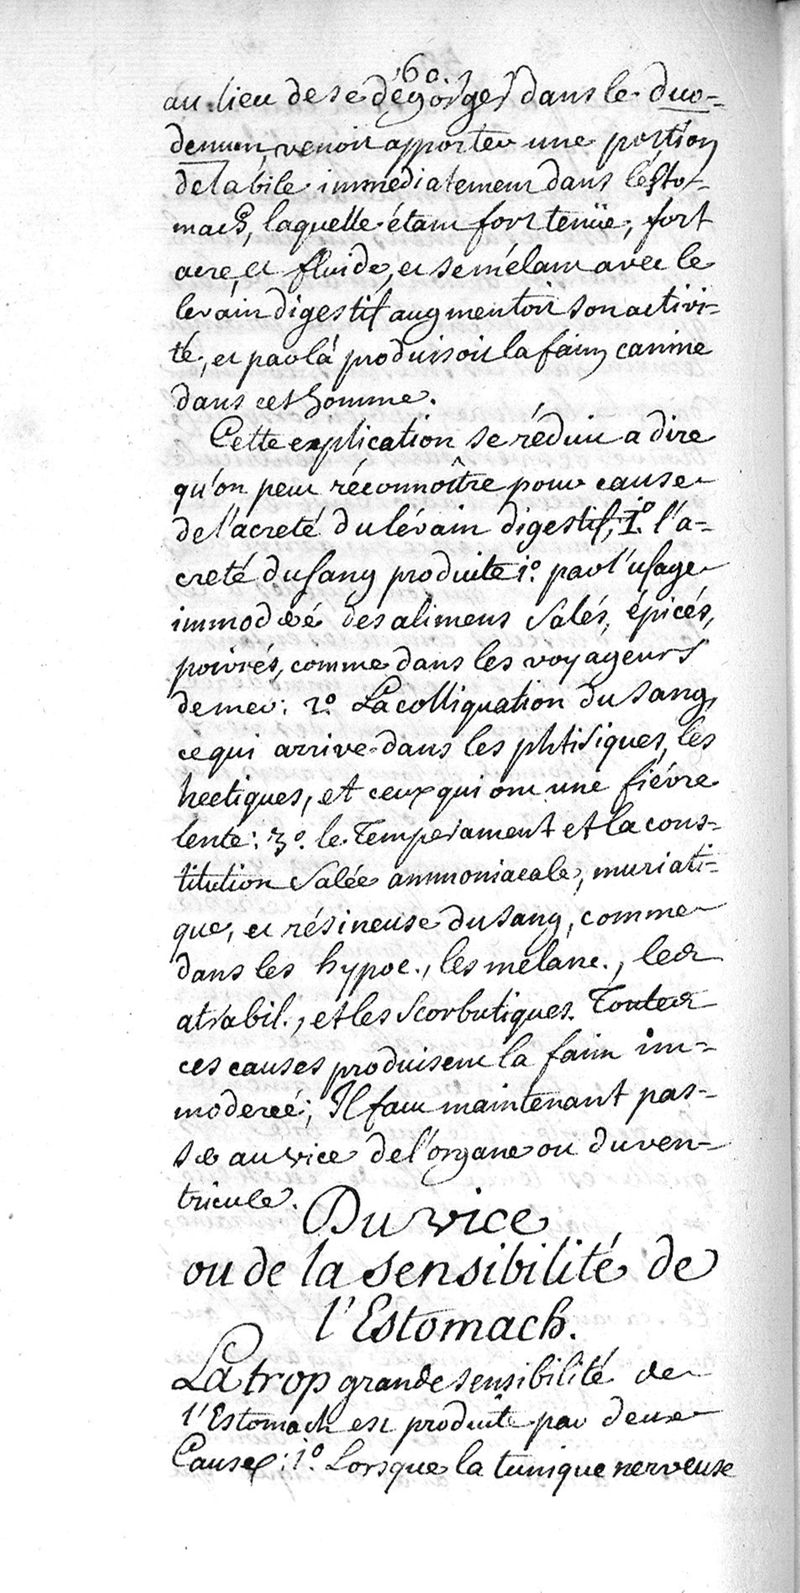 60.
au lieu de se dégorger dans le duo-
denum, venoit apporter une portion
de la bile immediatement dans l'esto-
mach, laquelle étant fort tenüe, fort
acre, et fluide, et se mélant avec le
levain digestif augmentoit son activi-
té, et par là produisoit la faim canine
dans cet homme.
Cette explication se réduit a dire
qu'on peut réconnoître pour cause
de l'acreté du lévain digestif, 1.º l'a-
creté du sang produite 1.º par l'usage
immoderé des alimens salés, épicés,
poivrés, comme dans les voyageurs
de mer: 2.º La colliquation du sang,
ce qui arrive dans les phtisiques, les
hectiques, et ceux qui ont une fiévre
lente: 3.º le Temperament et la cons-
titution salée ammoniacale, muriati-
que, et résineuse du sang, comme
dans les hypoc., les melanc., les
atrabil., et les scorbutiques. Toutes
ces causes produisent la faim im-
moderée; Il faut maintenant pas-
ser au vice de l'organe ou du ven-
tricule.
Du vice
ou de la sensibilité de
l'Estomach.
La trop grande sensibilité de
l'Estomach est produite par deux
Causes: 1.º Lorsque la tunique nerveuse